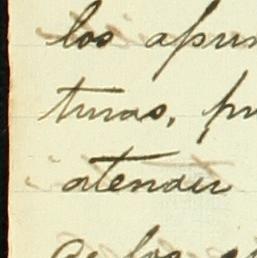 los apun
turas, pr
atender
de los